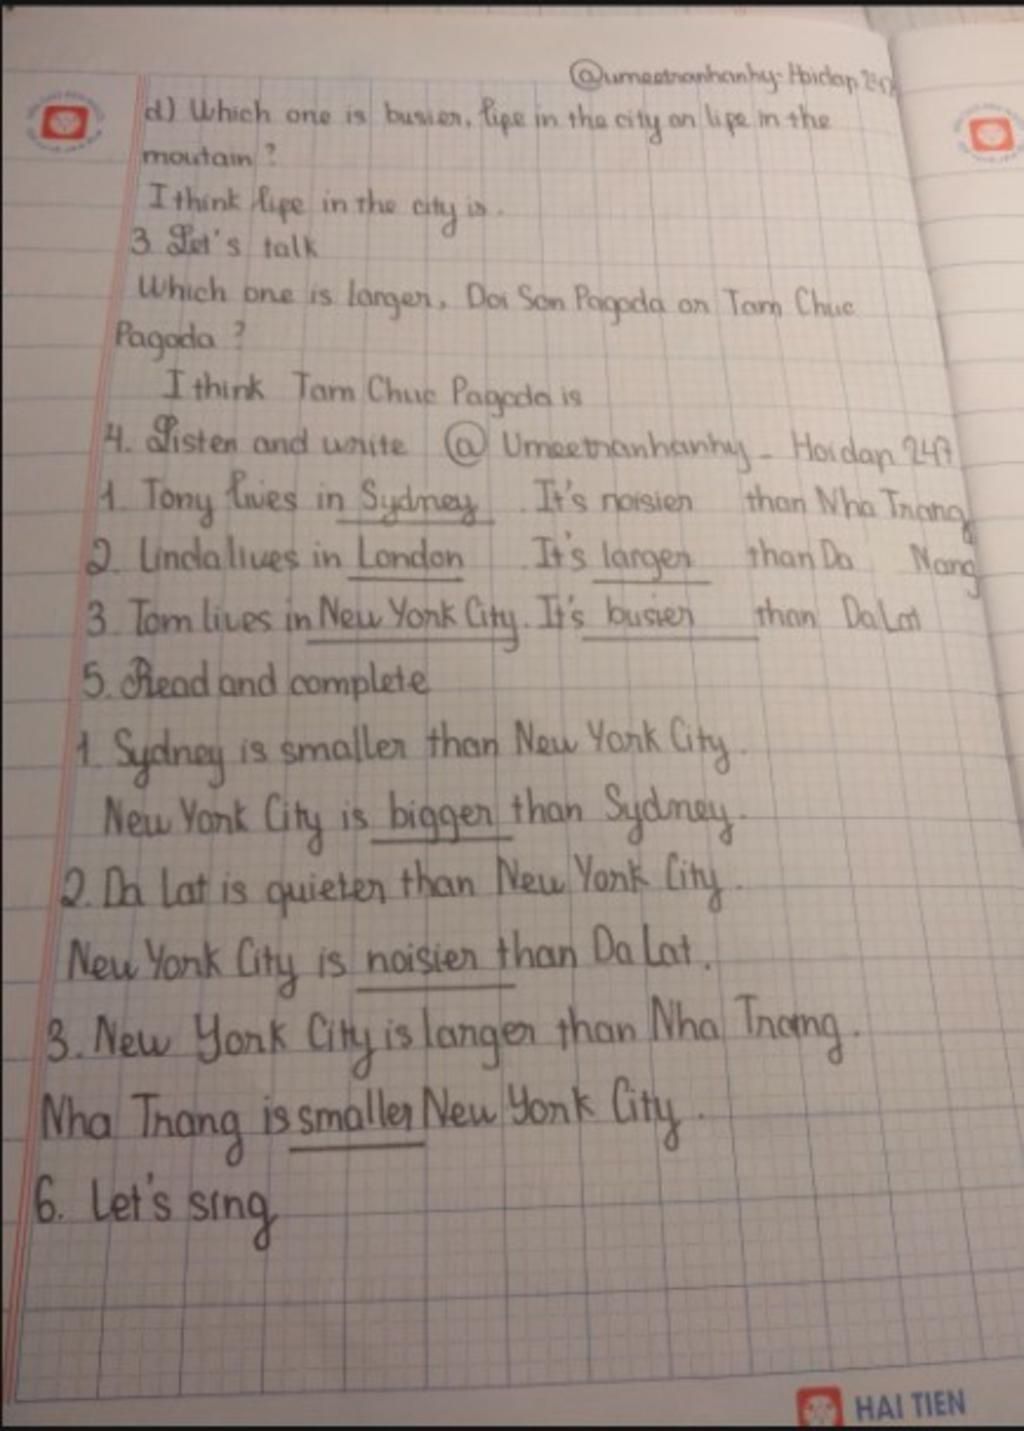 @umeetranhanhy-Hoidap 247
d) Which one is busier, life in the city or life in the
moutain ?
I think life in the city is.
3 Let's talk
Which one is larger, Doi Son Pagoda or Tam Chuc
Pagoda ?
I think Tam Chuc Pagoda is
4. Listen and write @ Umeetranhanhy - Hoidap 247
1. Tony lives in Sydney . It's noisier than Nha Trang
2. Linda lives in London It's larger than Da Nang
3. Tom lives in New York City. It's busier than Da Lat
5. Read and complete
1. Sydney is smaller than New York City.
New York City is bigger than Sydney.
2. Da Lat is quieter than New York City.
New York City is noisier than Da Lat.
3. New York City is larger than Nha Trang.
Nha Trang is smaller New York City.
6. Let's sing
HAI TIEN